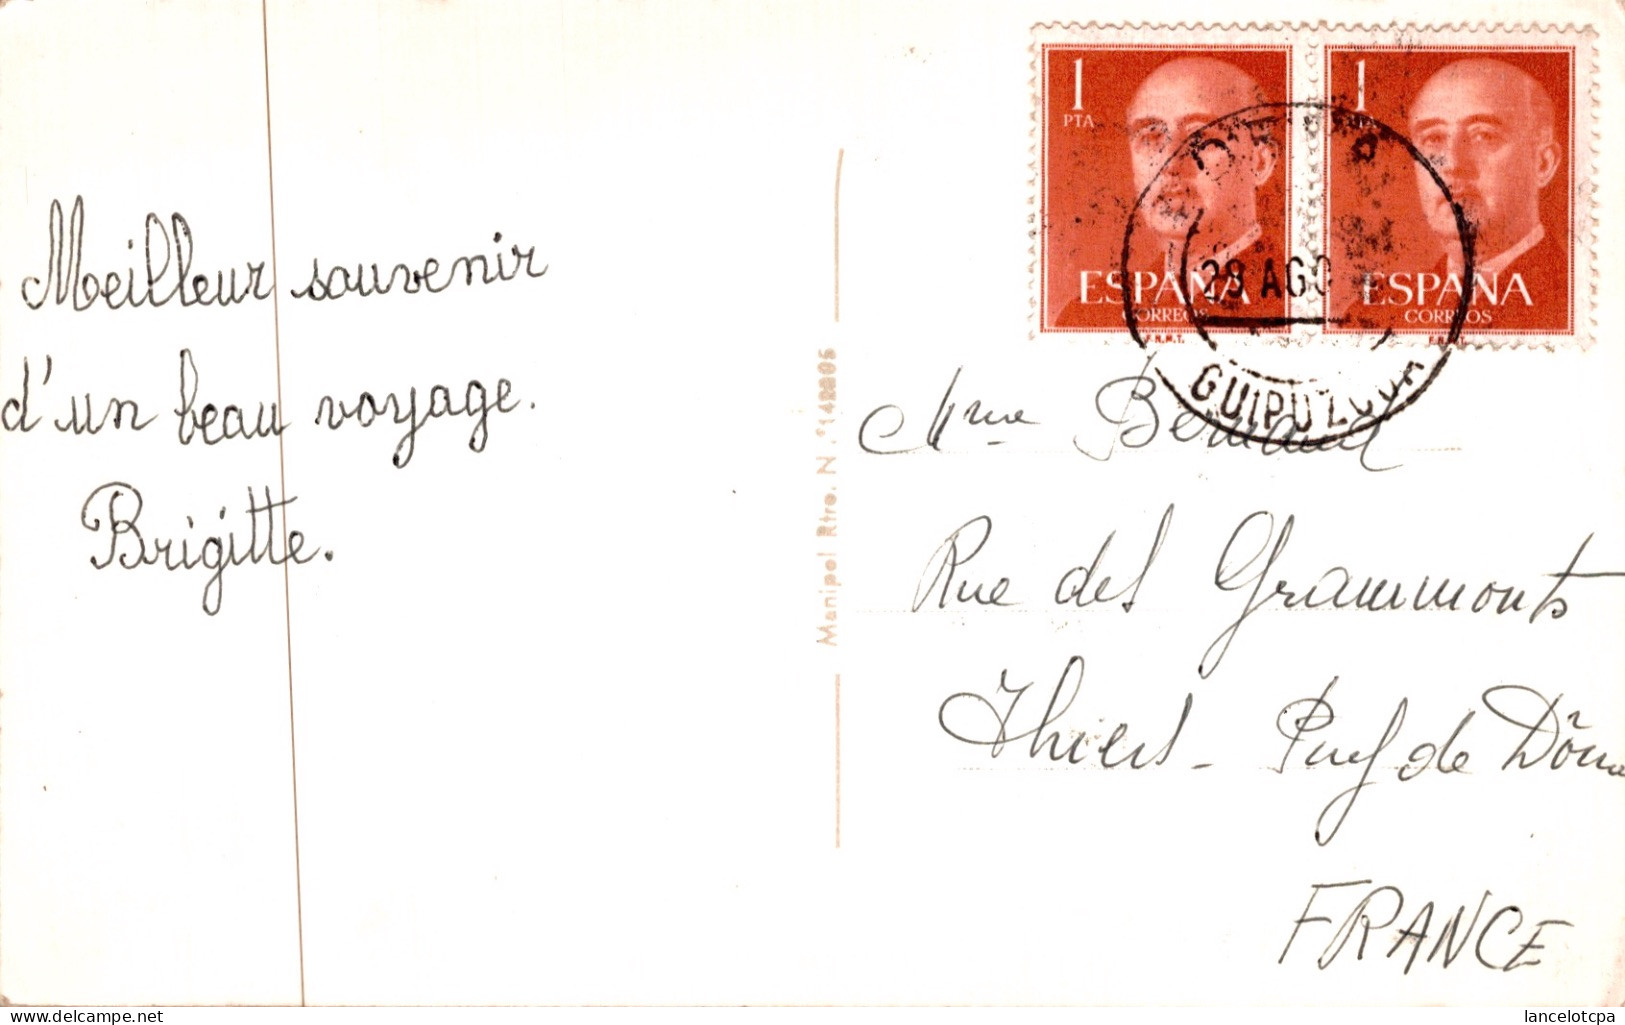 Meilleur souvenir
d'un beau voyage.
Brigitte.
Manipol Rtro. N.° 142805
1
PTA
ESPAÑA
CORREOS
F.N.M.T.
1
ESPAÑA
CORREOS
F.N.M.T.
29 AGO
GUIPUZCOA
Mme Bernard
Rue des Grammonts
Thiers - Puy de Dôme
FRANCE
www.delcampe.net
lancelotcpa